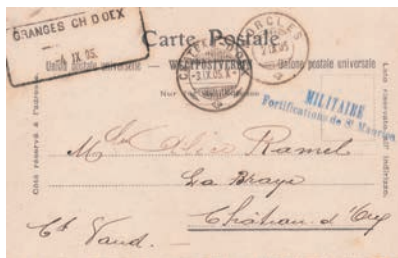 GRANGES CH D'OEX
4 IX 05.
Carte Postale
Union postale universelle — WELTPOSTVEREIN — Unione postale universale
CHATEAU D'OEX
-3.IX.05.X-
IX 05
Nur für die Adresse
MILITAIRE
Fortifications de St Maurice
Côté réservé à l'adresse.
Lato riservato all' indirizzo.
Mlle Alice Ramel
La Braye
Château d'Oex
Ct Vaud.